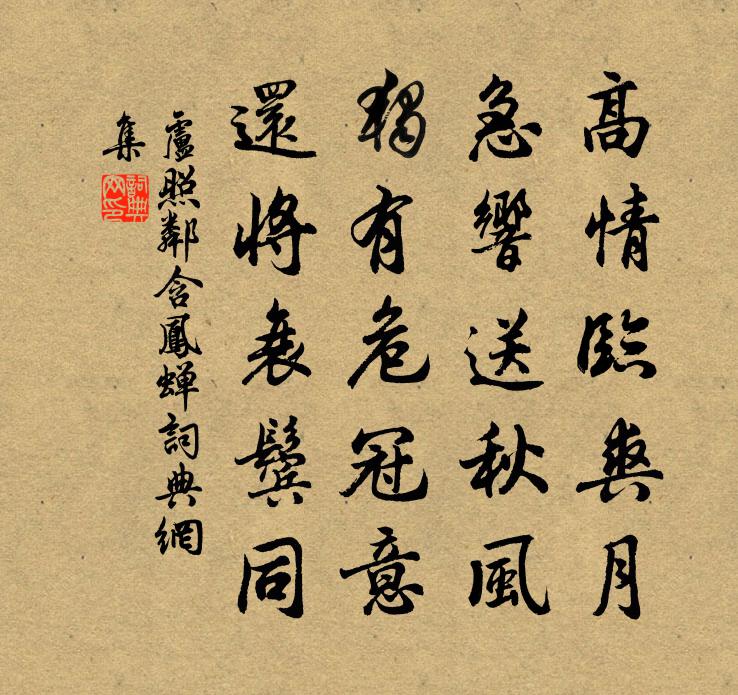 高情臨爽月
急響送秋風
獨有危冠意
還將衰鬢同
盧照鄰含鳳蟬詞典網
集
詞典
网印